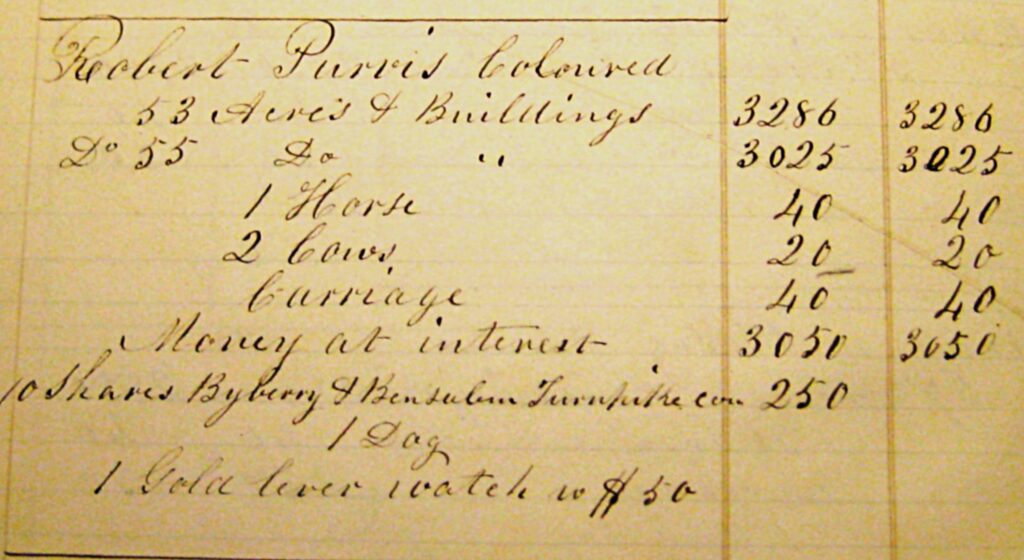 Robert Purvis Coloured
53 Acres & Buildings 3286 3286
Do 55 Do " 3025 3025
1 Horse 40 40
2 Cows 20 20
Carriage 40 40
Money at interest 3050 3050
10 Shares Byberry & Bensalem Turnpike com 250
1 Dog
1 Gold lever watch w $ 50